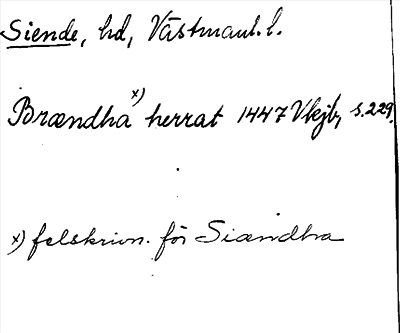 Siende, hd, Västmanl. l.
Brændha x) herrat 1447 Vkjb, s. 229.
x) felskrivn. för Siændha